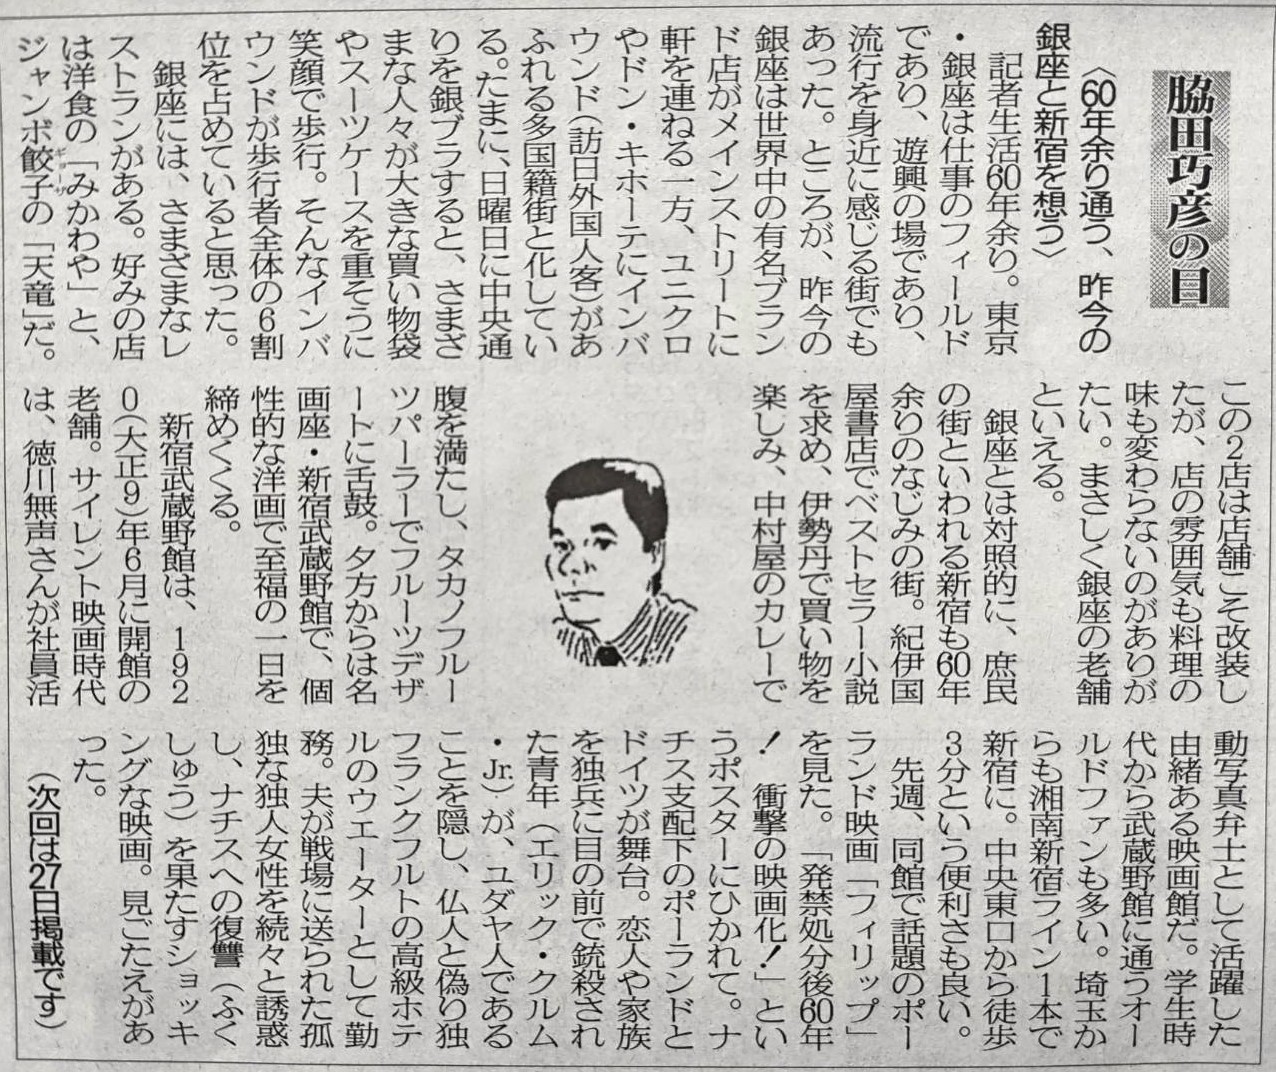 脇田巧彦の目
〈60年余り通う、昨今の
銀座と新宿を想う〉
記者生活60年余り。東京
・銀座は仕事のフィールド
であり、遊興の場であり、
流行を身近に感じる街でも
あった。ところが、昨今の
銀座は世界中の有名ブラン
ド店がメインストリートに
軒を連ねる一方、ユニクロ
やドン・キホーテにインバ
ウンド(訪日外国人客)があ
ふれる多国籍街と化してい
る。たまに、日曜日に中央通
りを銀ブラすると、さまざ
まな人々が大きな買い物袋
やスーツケースを重そうに
笑顔で歩行。そんなインバ
ウンドが歩行者全体の6割
位を占めていると思った。
銀座には、さまざまなレ
ストランがある。好みの店
は洋食の「みかわや」と、
ジャンボ餃子の「天竜」だ。
ギョーザ
この2店は店舗こそ改装し
たが、店の雰囲気も料理の
味も変わらないのがありが
たい。まさしく銀座の老舗
といえる。
銀座とは対照的に、庶民
の街といわれる新宿も60年
余りのなじみの街。紀伊国
屋書店でベストセラー小説
を求め、伊勢丹で買い物を
楽しみ、中村屋のカレーで
腹を満たし、タカノフルー
ツパーラーでフルーツデザ
ートに舌鼓。夕方からは名
画座・新宿武蔵野館で、個
性的な洋画で至福の一日を
締めくくる。
新宿武蔵野館は、192
0(大正9)年6月に開館の
老舗。サイレント映画時代
は、徳川無声さんが社員活
動写真弁士として活躍した
由緒ある映画館だ。学生時
代から武蔵野館に通うオー
ルドファンも多い。埼玉か
らも湘南新宿ライン1本で
新宿に。中央東口から徒歩
3分という便利さも良い。
先週、同館で話題のポー
ランド映画「フィリップ」
を見た。「発禁処分後60年
！　衝撃の映画化！」とい
うポスターにひかれて。ナ
チス支配下のポーランドと
ドイツが舞台。恋人や家族
を独兵に目の前で銃殺され
た青年（エリック・クルム
・Jr.）が、ユダヤ人である
ことを隠し、仏人と偽り独
フランクフルトの高級ホテ
ルのウエーターとして勤
務。夫が戦場に送られた孤
独な独人女性を続々と誘惑
し、ナチスへの復讐（ふく
しゅう）を果たすショッキ
ングな映画。見ごたえがあ
った。
（次回は27日掲載です）